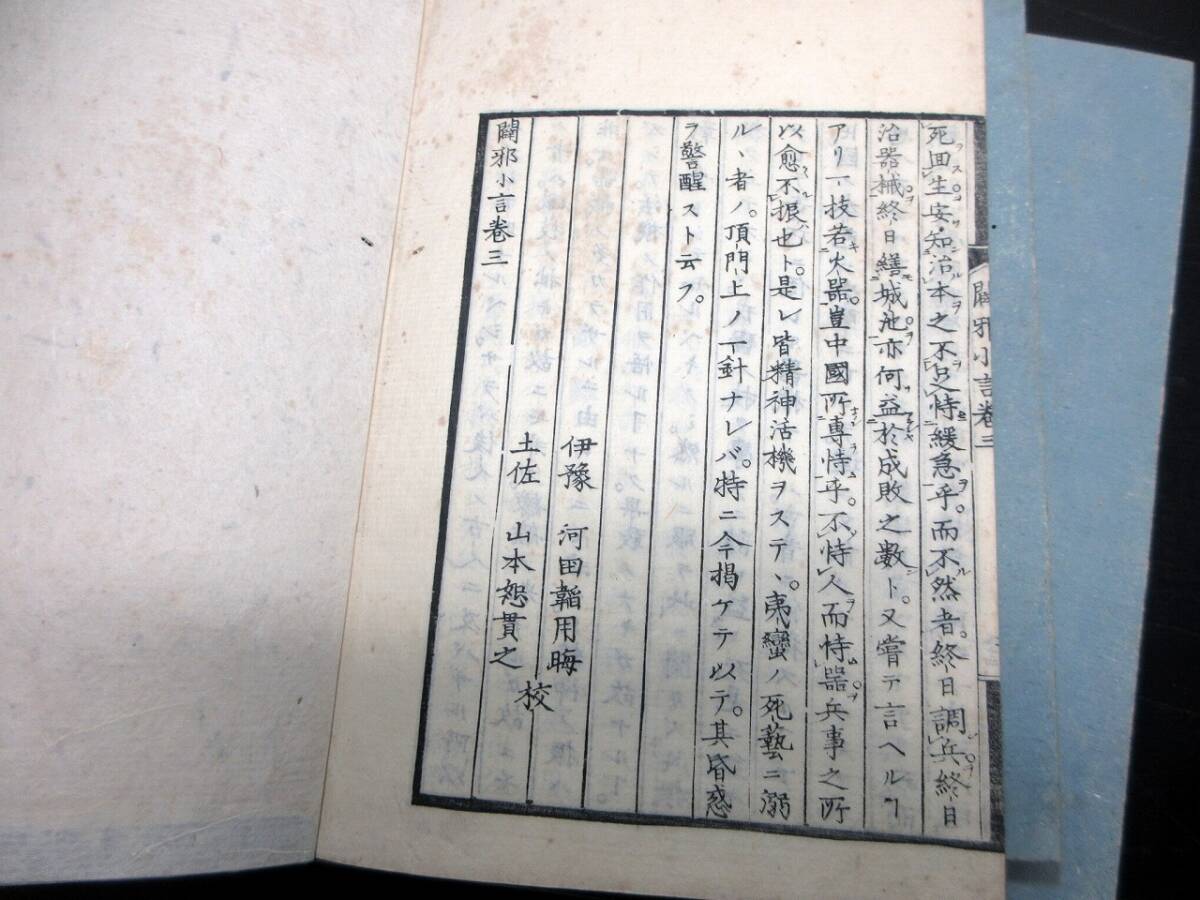 闢邪小言卷三
死囬生安知治本之不足恃緩急乎。而不然者。終日調兵終日
治器械。終日繕城池。亦何益於成敗之數ト。又嘗テ言ヘルヿ
アリ一技若火器。豈中國所專恃乎。不恃人而恃器兵事之所
以愈不振也ト。是レ皆精神活機ヲステヽ。夷蠻ノ死藝ニ溺
ルヽ者ノ。頂門上ノ一針ナレバ。特ニ今掲ケテ以テ。其昏惑
ヲ警醒スト云フ。
伊豫 河田韜用晦
土佐 山本恕貫之
校
闢邪小言卷三